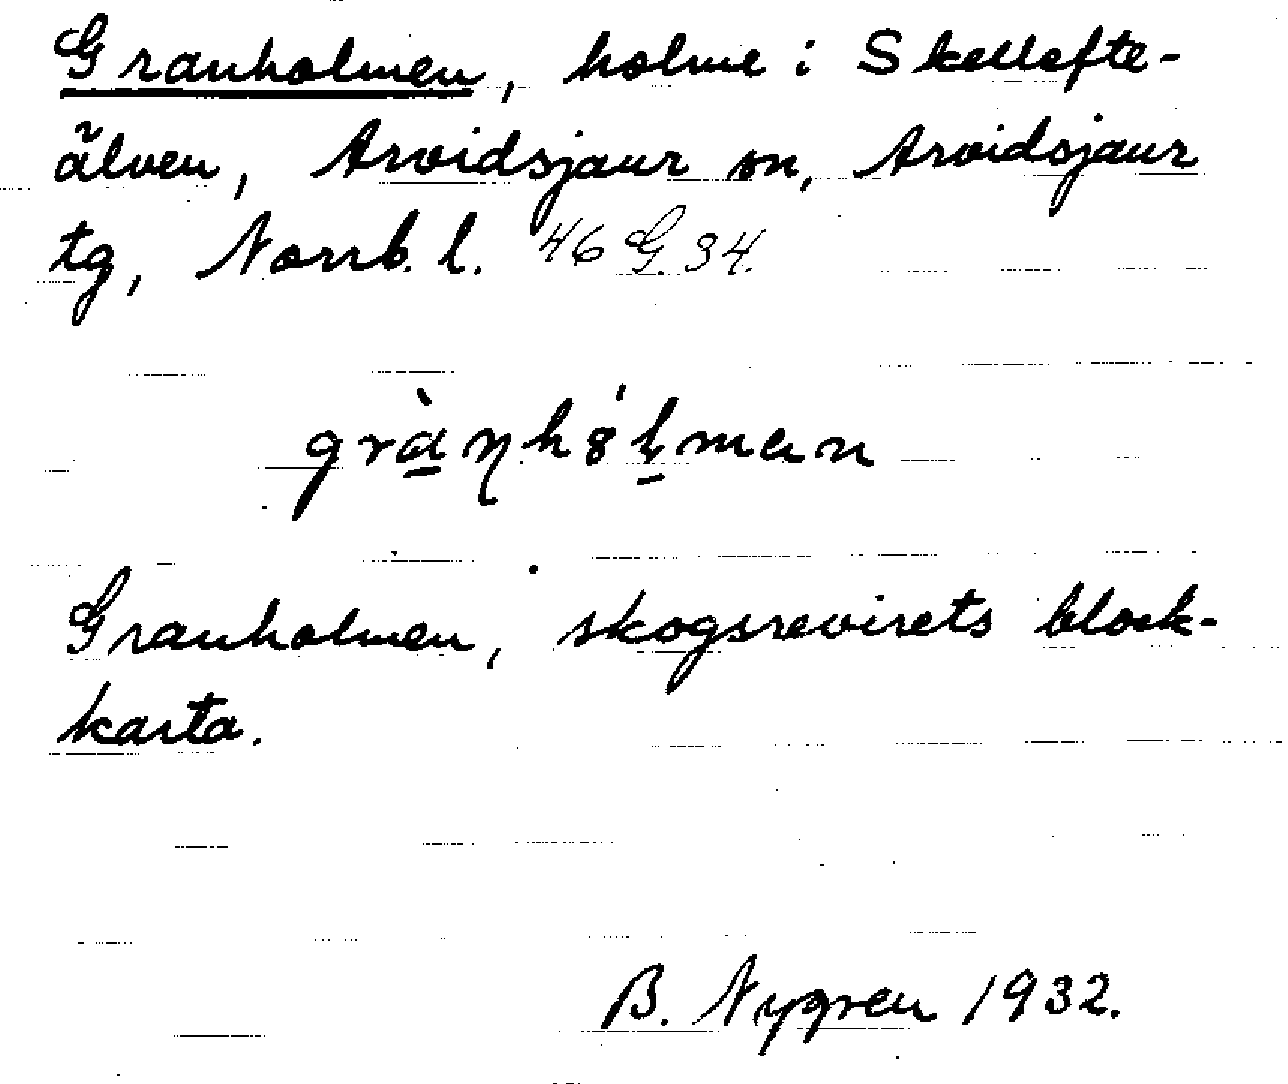 Granholmen, holme i Skellefte-
älven, Arvidsjaur sn, Arvidsjaur
tg, Norrb. l. 46 G. 34.
grànhȯlman
Granholmen, skogsrevirets block-
karta.
B. Nygren 1932.